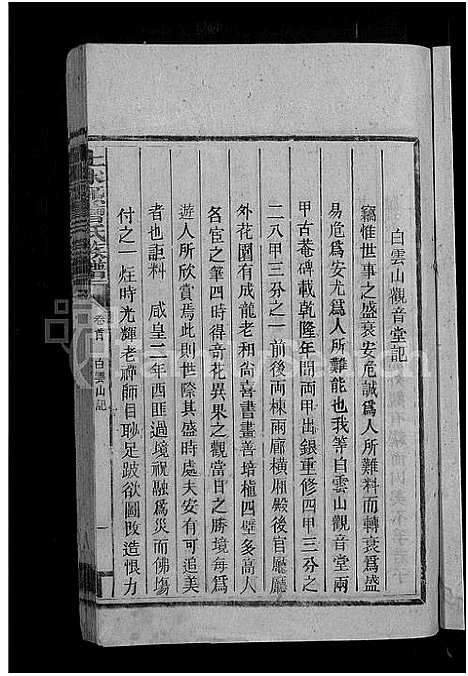 白雲山觀音堂記
竊惟世事之盛衰安危誠爲人所難料而轉衰爲盛
易危爲安尤爲人所難能也我等白雲山觀音堂兩
甲古菴碑載乾隆年間両甲出銀重修四甲三分之
二八甲三分之一前後両棟兩廊橫厢殿後官廳廳
外花園有成龍老和尚喜書畫善培植四壁多高人
各宦之筆四時得竒花異果之觀當日之勝境每爲
遊人所欣賞焉此則世際其盛時處夫安有可追美
者也詎料　咸皇二年西匪過境祝融爲災而佛塲
付之一炷時光輝老禪師目眇足跛欲圖改造恨力
氏族譜
卷首
白雲山記